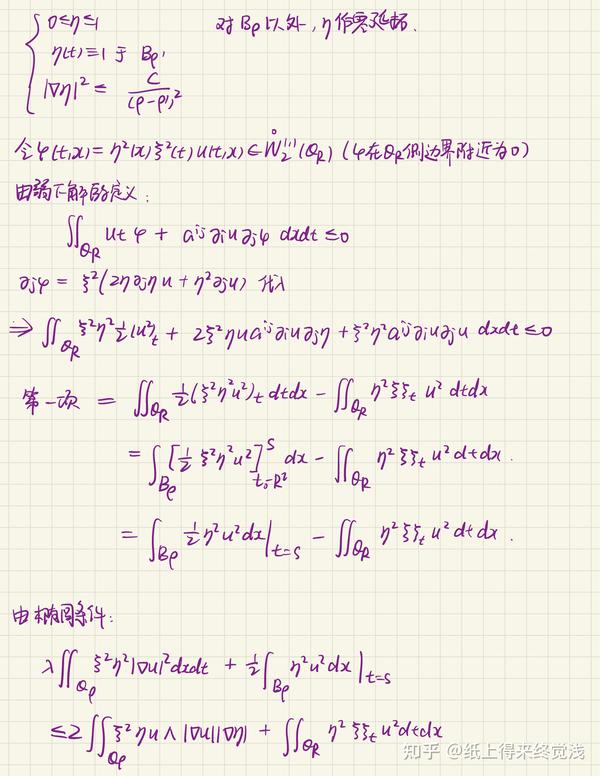 0≤η≤1 对 Bρ 以外, η 作零延拓.
η(t)≡1 于 Bρ'
|∇η|² ≤ C/(ρ-ρ')²
令φ(t,x) = η²(x) ξ²(t) u(t,x) ∈ W̊₂^{1,1}(Q_R) (φ在Q_R侧边界附近为0)
由弱下解的定义:
∬_{Q_R} u_t φ + a^{ij} ∂_i u ∂_j φ dxdt ≤ 0
∂_jφ = ξ²(2η∂_jη u + η²∂_ju) 代入
⇒ ∬_{Q_R} ξ²η² ½(u²)_t + 2ξ²ηu a^{ij}∂_iu∂_jη + ξ²η²a^{ij}∂_iu∂_ju dxdt ≤ 0
第一项 = ∬_{Q_R} ½(ξ²η²u²)_t dtdx - ∬_{Q_R} η²ξξ_t u² dtdx
= ∫_{Bρ} [½ ξ²η²u²]_{t₀-R²}^{s} dx - ∬_{Q_R} η²ξξ_t u² dtdx.
= ∫_{Bρ} ½η²u²dx|_{t=s} - ∬_{Q_R} η²ξξ_t u² dtdx.
由椭圆条件:
λ∬_{Qρ} ξ²η²|∇u|²dxdt + ½∫_{Bρ} η²u²dx|_{t=s}
≤2∬_{Qρ} ξ²ηu Λ|∇u||∇η| + ∬_{Q_R} η²ξξ_t u²dtdx
知乎 @纸上得来终觉浅